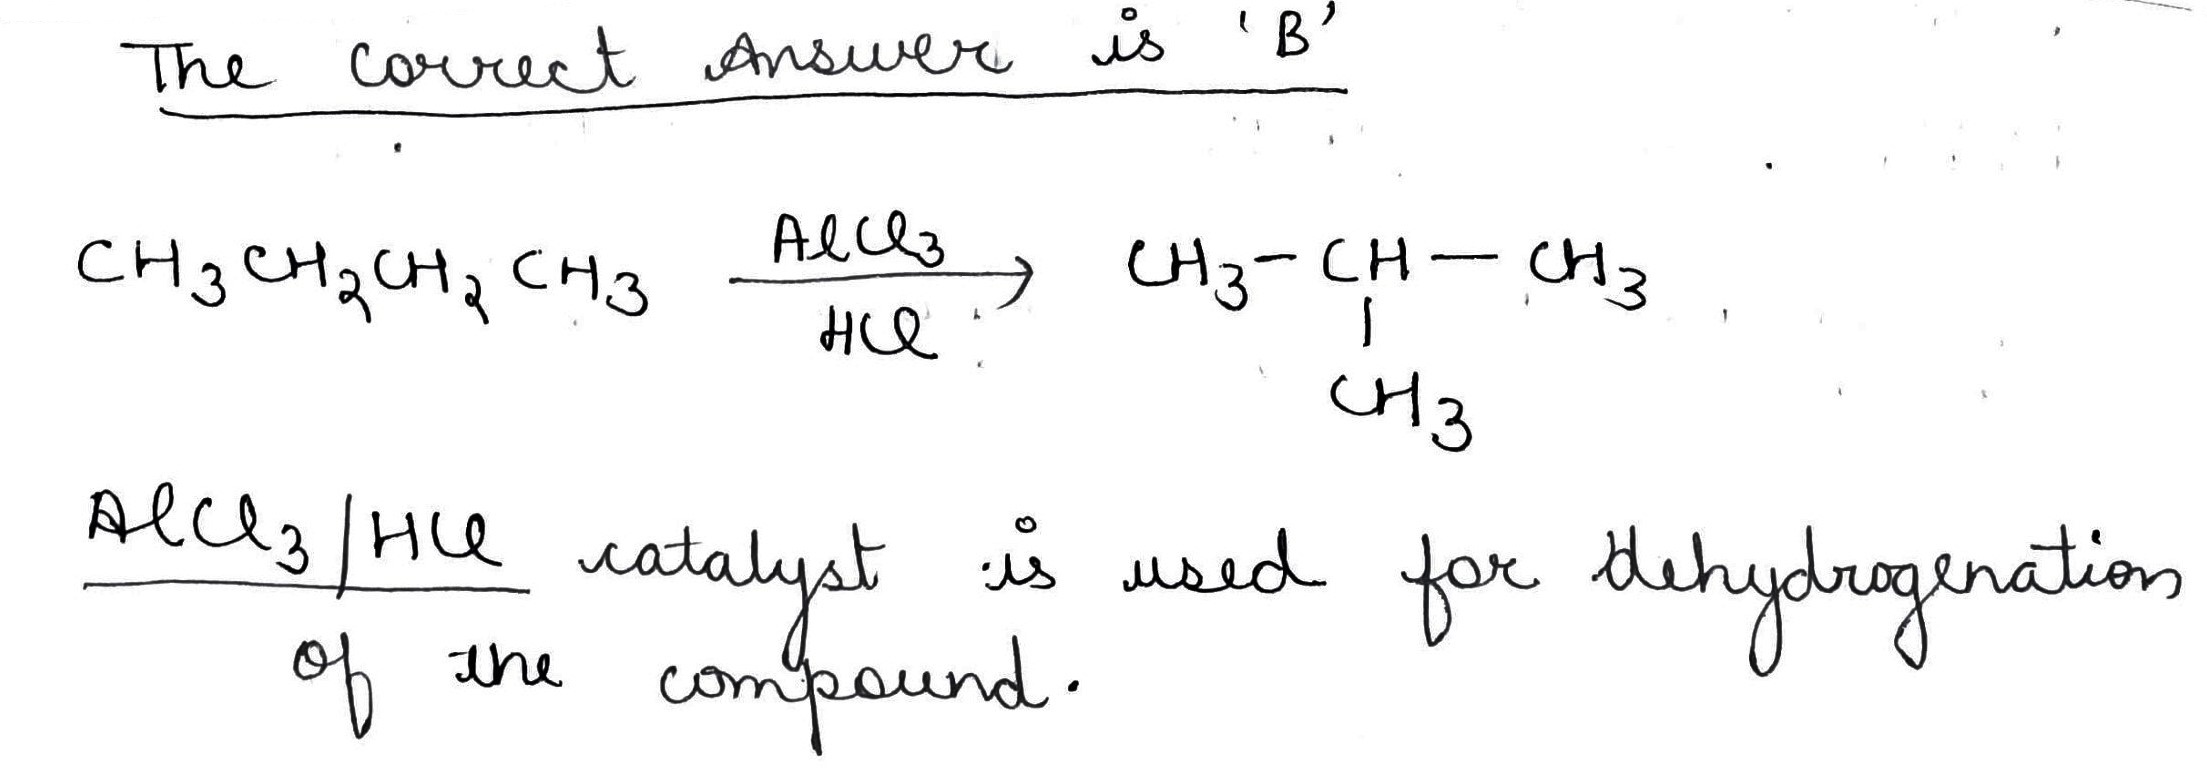 The correct Answer is 'B'
CH3CH2CH2CH3 AlCl3 HCl → CH3-CH-CH3
|
CH3
AlCl3/HCl catalyst is used for dehydrogenation
of the compound.